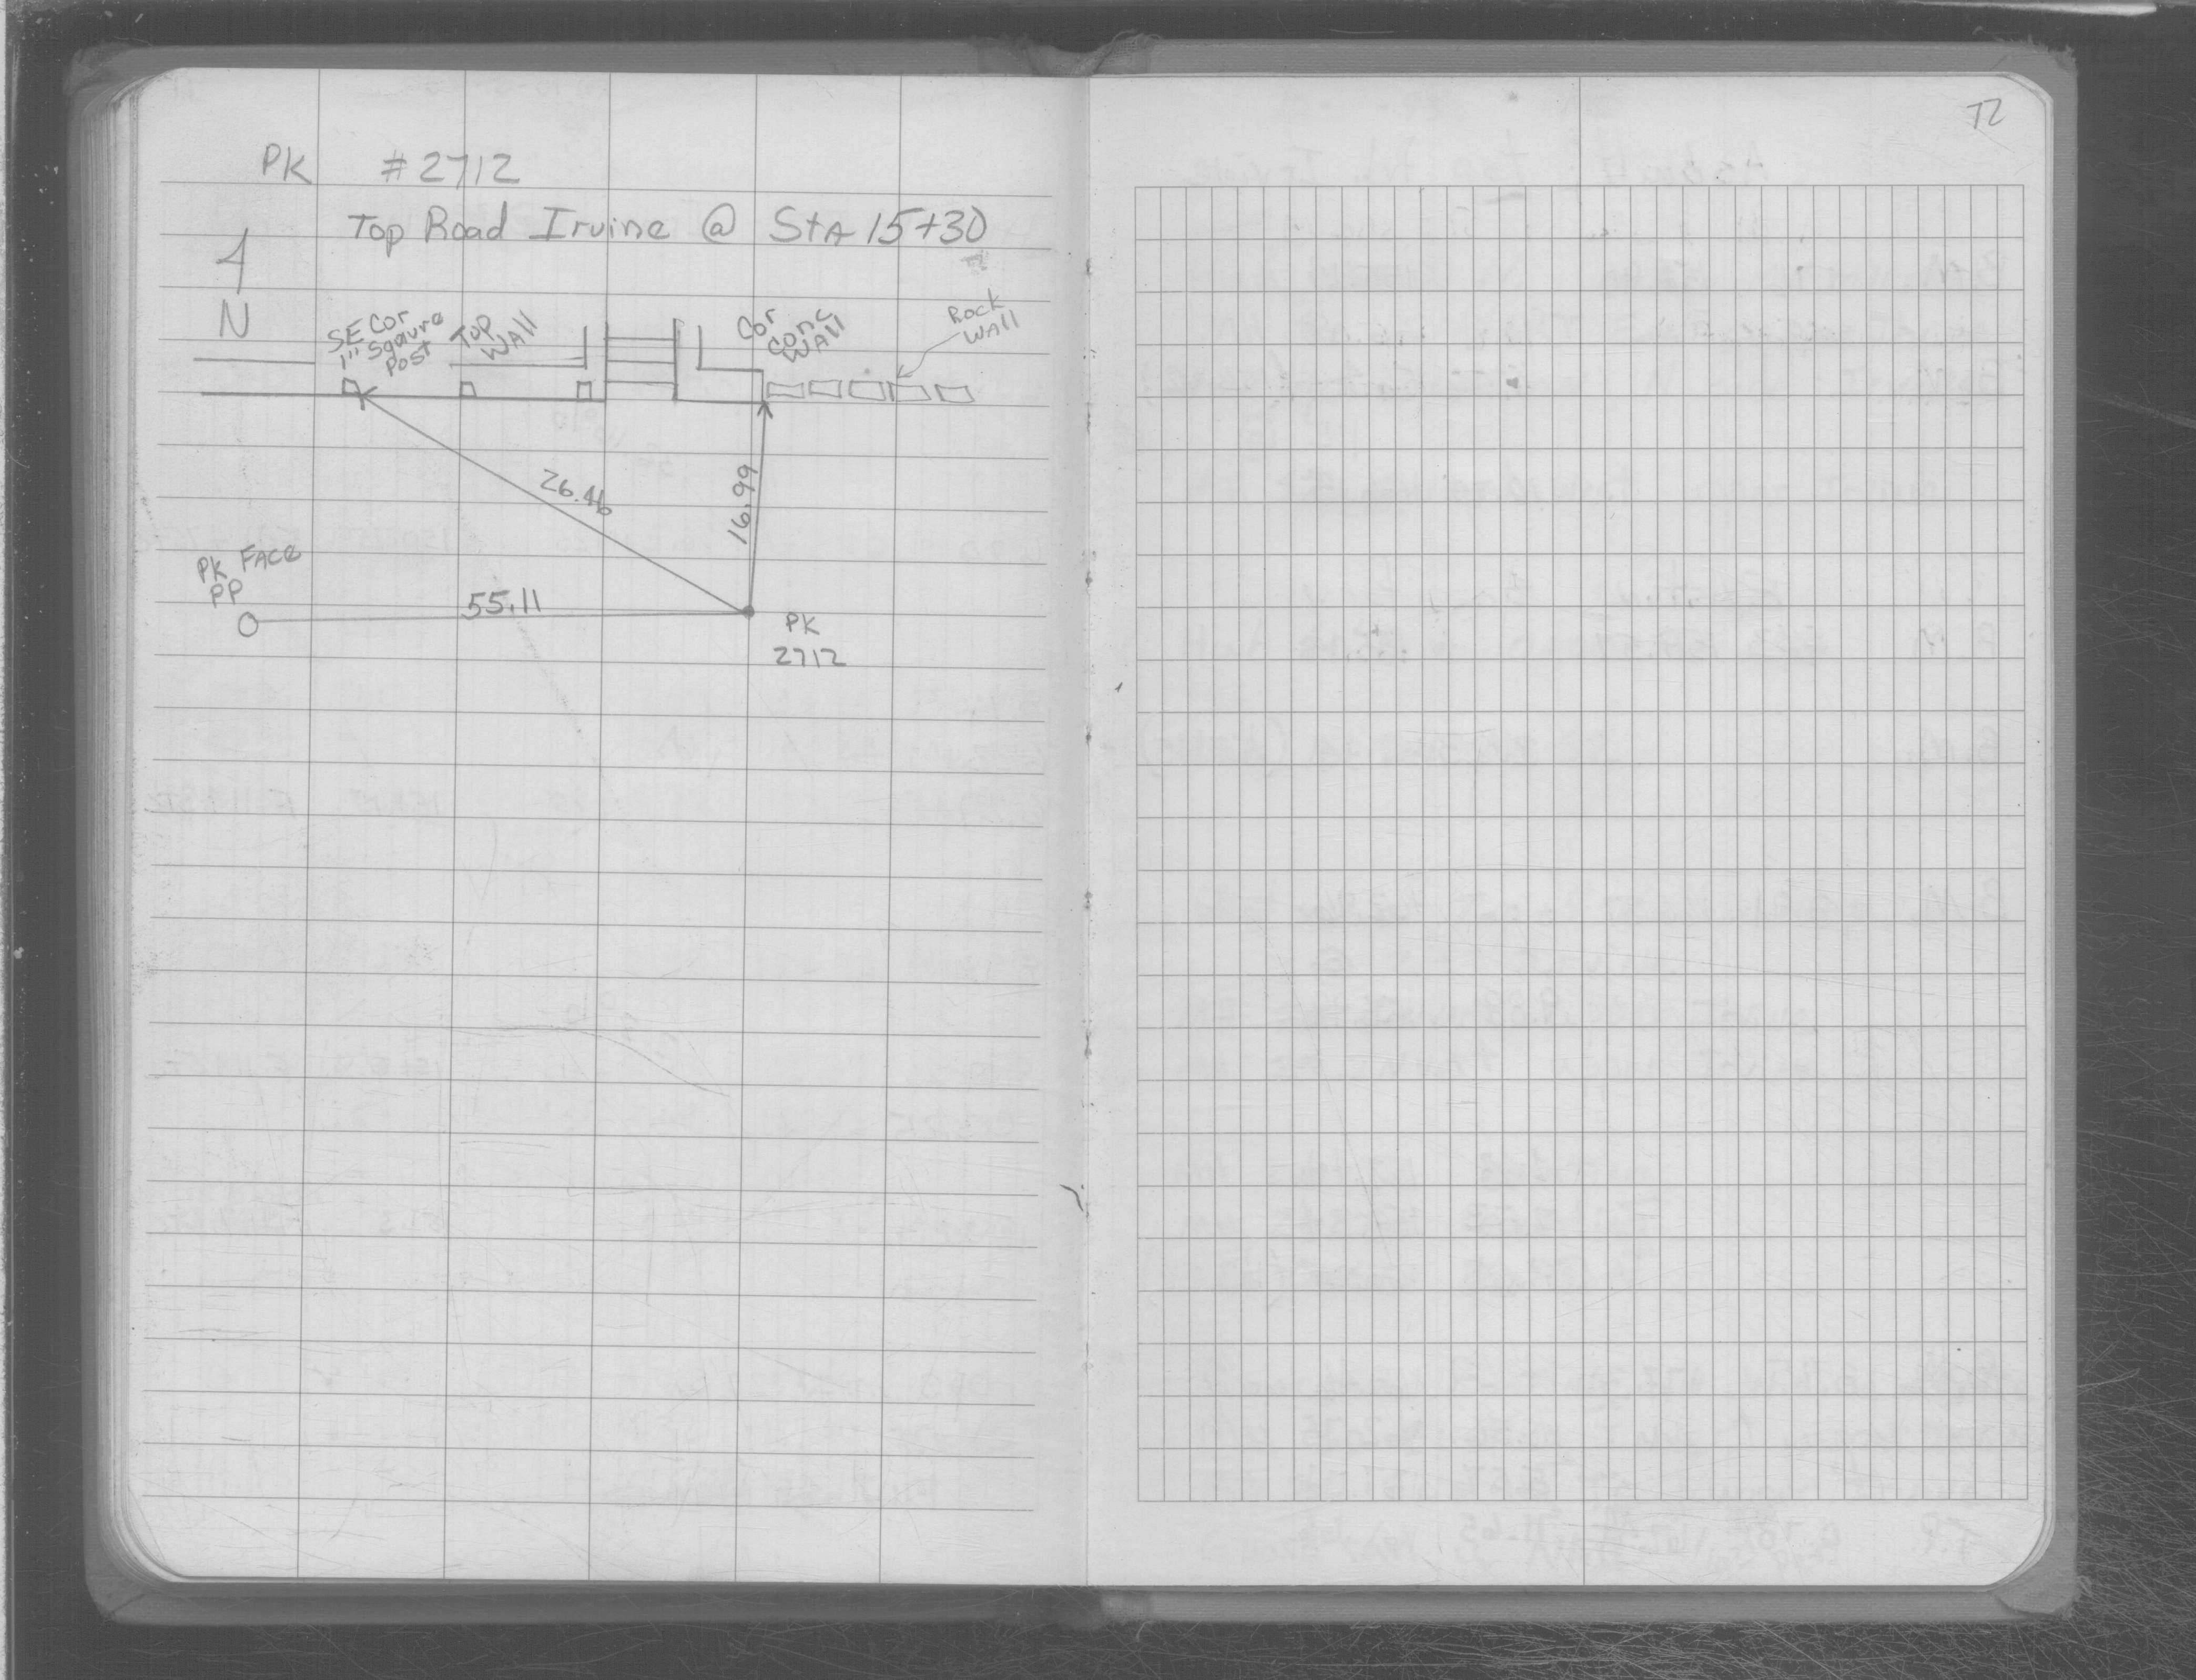 72
PK #2712
Top Road Irvine @ StA 15+30
N
SE Cor
1" Sqaure
Post
Top
WAll
Cor
Conc
WAll
Rock
WAll
26.46
16.99
PK FACE
PP
55.11
PK
2712